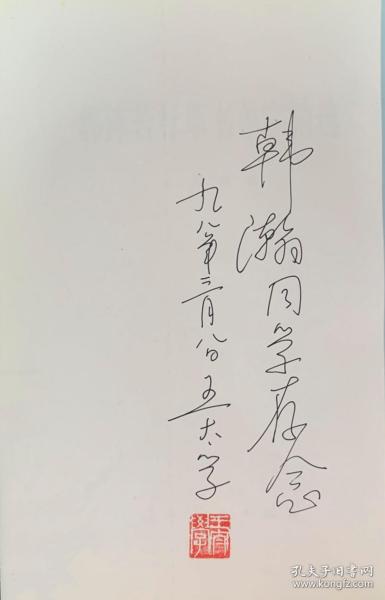 韩瀚同学存念
九八年三月八日 王学
孔夫子旧书网
book.kongfz.com